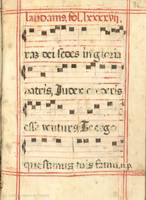 laudamus. fol. lxxxxvii.
dei sedes in gloria
patris. Judex crederis
esse venturus. Te ergo
quesumus tuis famu.